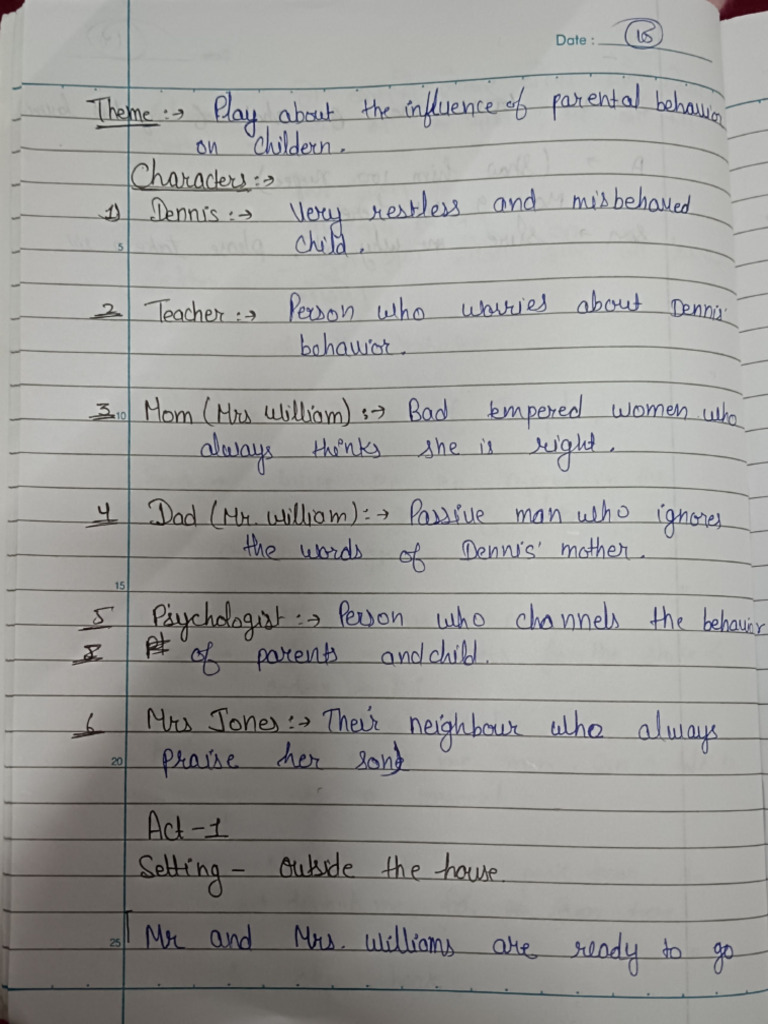 Date : 18
Theme :→ Play about the influence of parental behavior
on childern.
Characters :→
1) Dennis :→ Very restless and misbehaved
5 child.
2 Teacher :→ Person who worries about Dennis'
bohavior.
3 10 Mom (Mrs William) :→ Bad tempered women who
always thinks she is right.
4 Dad (Mr. William) :→ Passive man who ignores
the words of Dennis' mother.
15
5 Psychologist :→ Person who channels the behavior
of parents and child.
6 Mrs Jones :→ Their neighbour who always
20 praise her son
Act -1
Setting - outside the house.
25 Mr and Mrs. Williams are ready to go